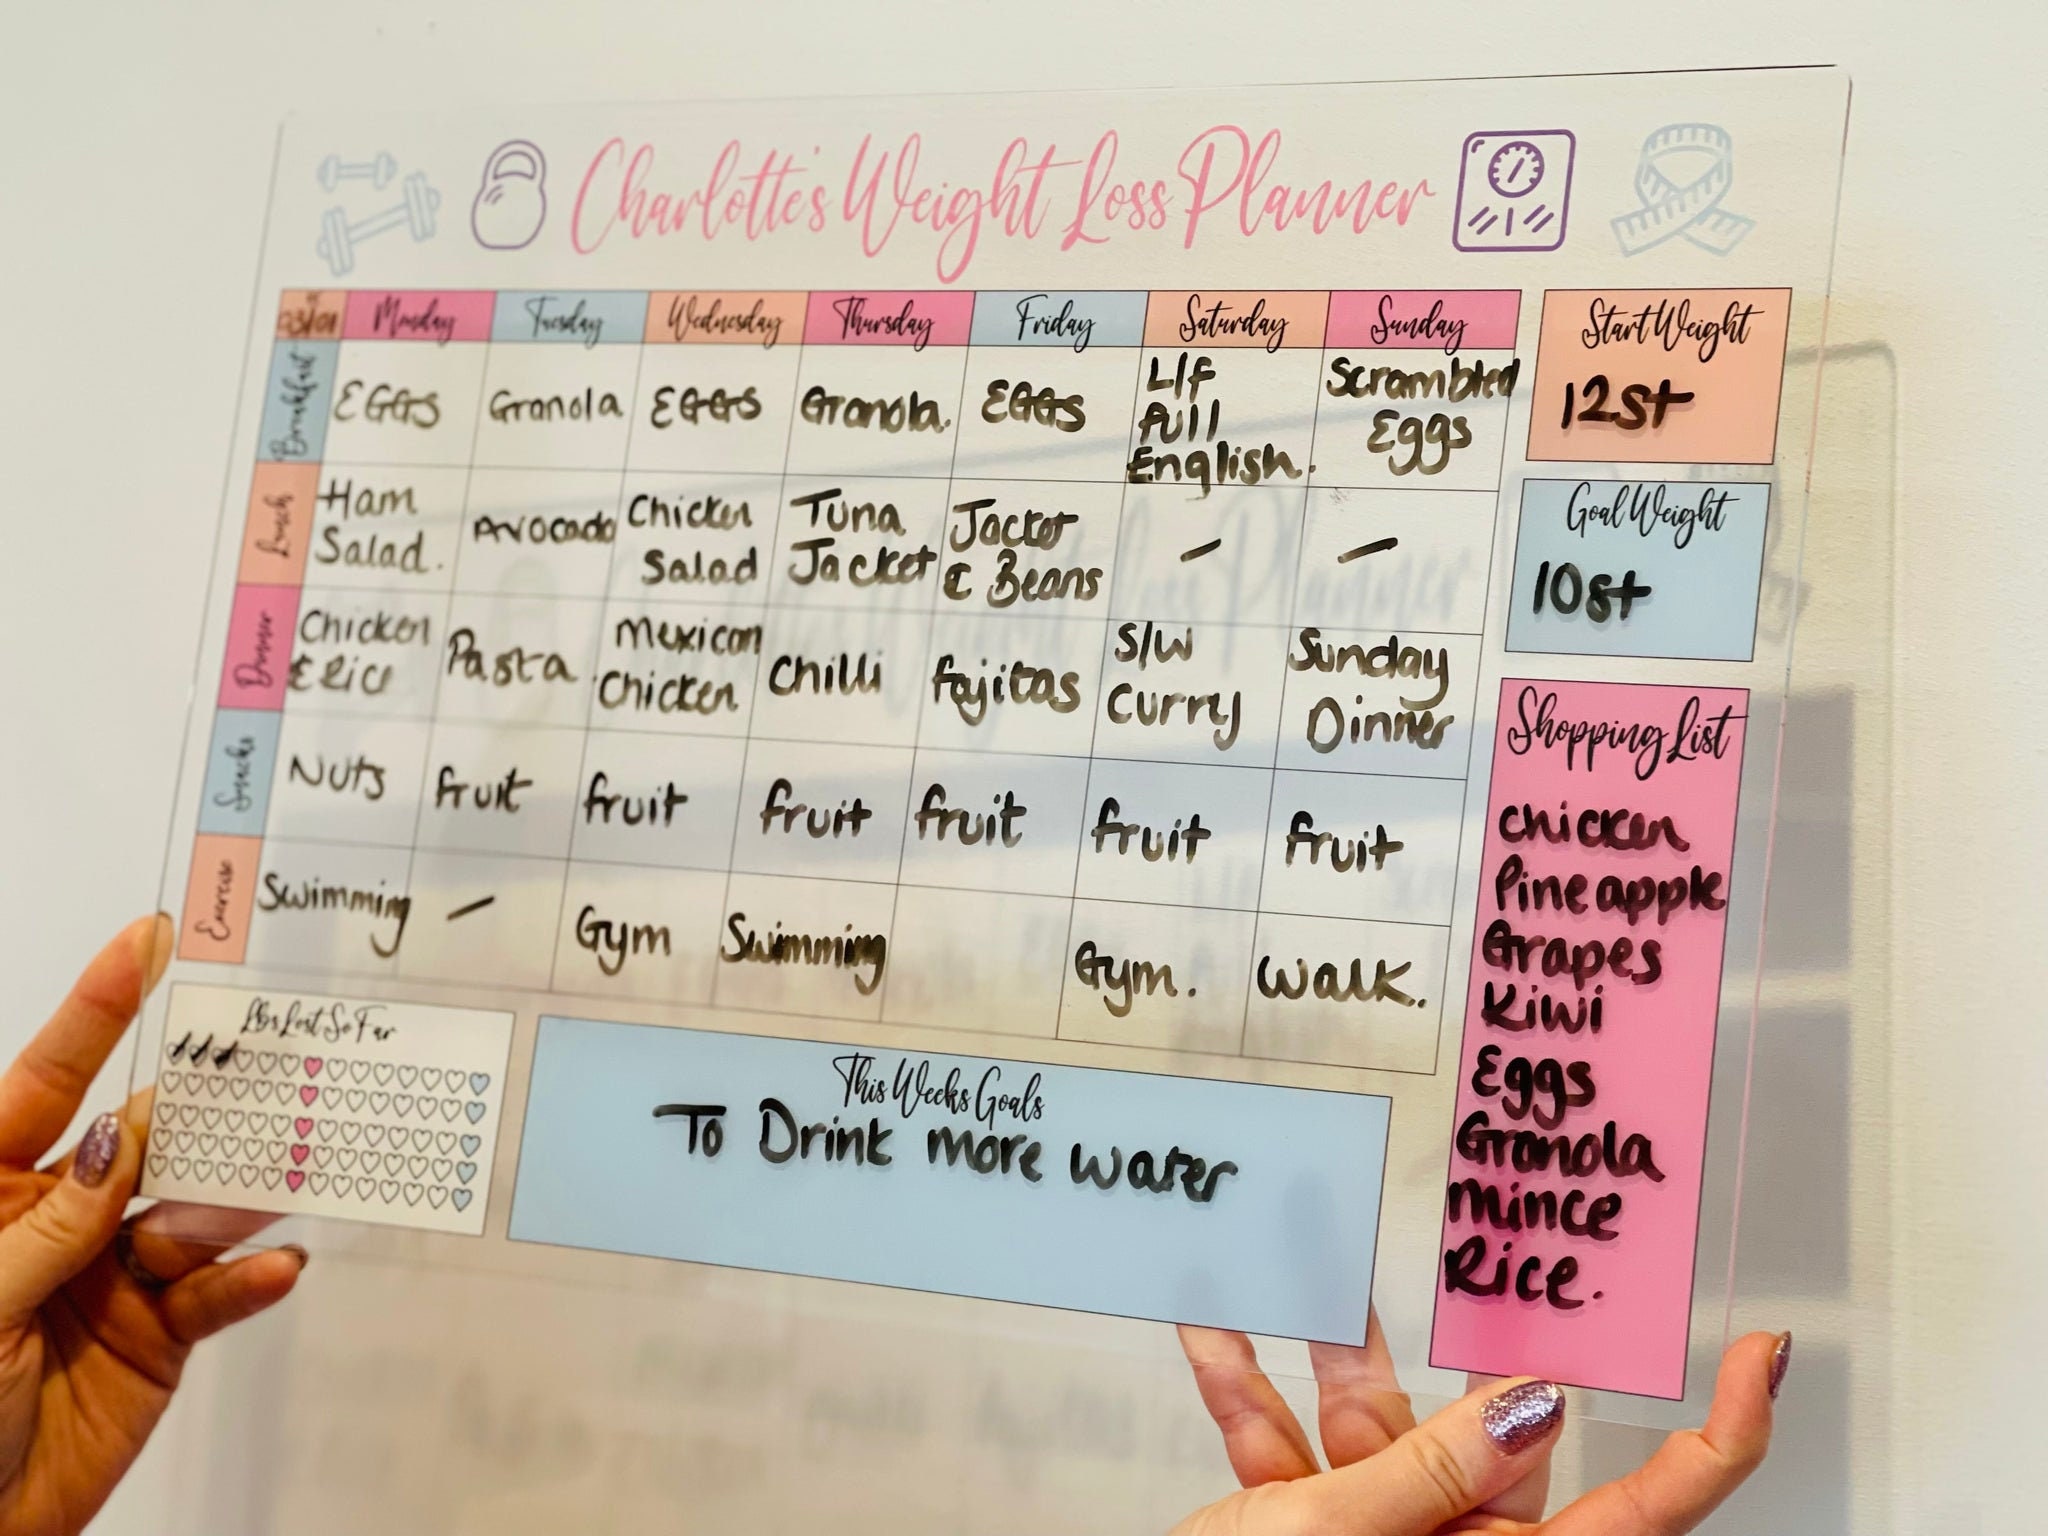 Charlotte's Weight Loss Planner
03/01 Monday Tuesday Wednesday Thursday Friday Saturday Sunday
Breakfast
EGGS
Granola
EGGS
Granola.
EGGS
L/f
full
English.
Scrambled
Eggs
Lunch
Ham
Salad.
Avocado
Chicken
Salad
Tuna
Jacket
Jacket
& Beans
-
-
Dinner
Chicken
& Rice
Pasta.
Mexican
Chicken
Chilli
Fajitas
S/W
Curry
Sunday
Dinner
Snacks
Nuts
Fruit
Fruit
Fruit
Fruit
Fruit
Fruit
Exercise
Swimming
-
Gym
Swimming
Gym.
Walk.
Start Weight
12st
Goal Weight
10st
Shopping List
Chicken
Pineapple
Grapes
Kiwi
Eggs
Granola
Mince
Rice.
Lbs Lost So Far
This Weeks Goals
To Drink more water